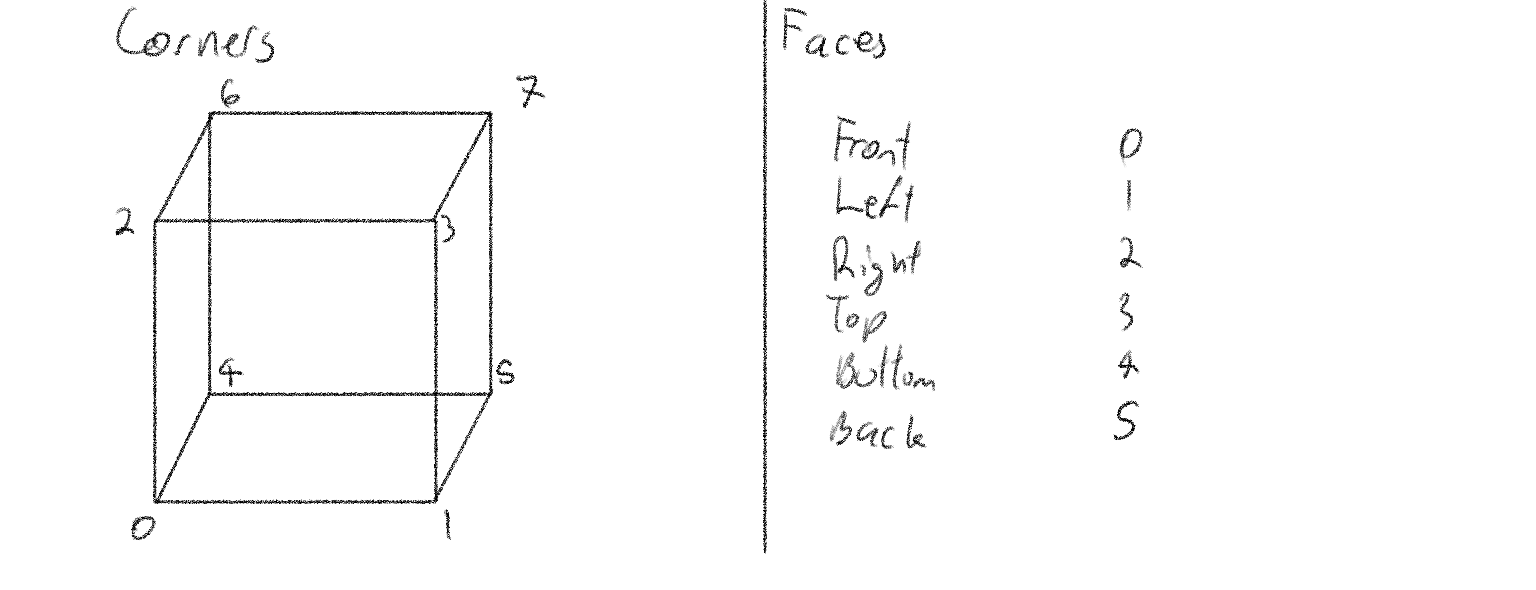 Corners
6 7
2 3
4 5
0 1
Faces
Front 0
Left 1
Right 2
Top 3
Bottom 4
Back 5